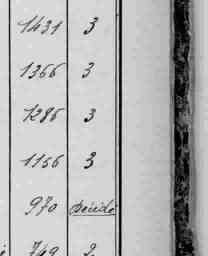 1431 3
1366 3
1286 3
1156 3
970 décidé
749 2